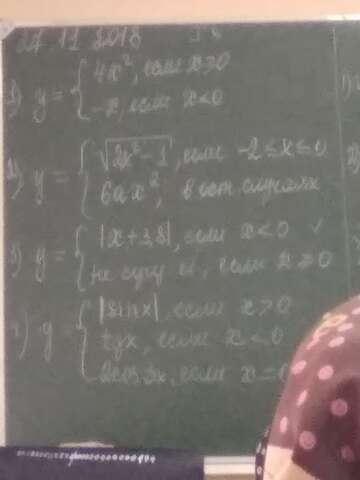 27.11.2018
1) y = { 4x², если x ≥ 0
-x, если x < 0
2) y = { √2x²-1, если -2 ≤ x ≤ 0
6ax², в ост. случаях
3) y = { |x+3,8|, если x < 0 ✓
не сущ, если x ≥ 0
4) y = { |sinx|, если x > 0
tgx, если x < 0
2cos3x, если x = 0
1)
2)